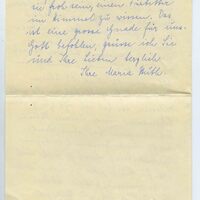 sie froh sein, einen Fürbitter
im Himmel zu wissen. Das
ist eine grosse Gnade für uns.
Gott befohlen, grüsse ich Sie
und Ihre Lieben herzlich
Ihre Maria